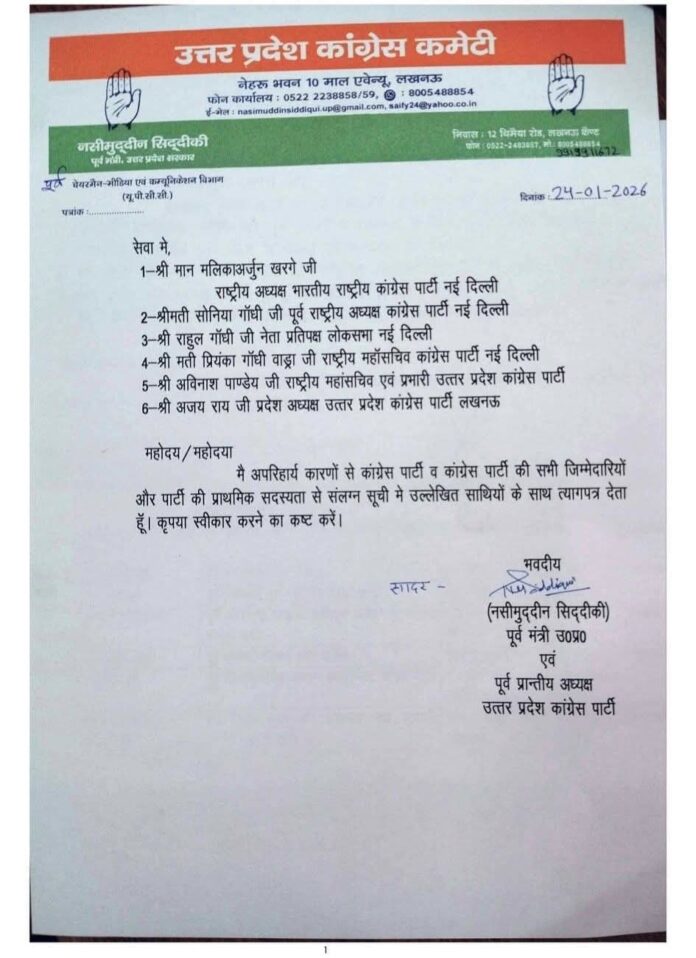 उत्तर प्रदेश कांग्रेस कमेटी
नेहरू भवन 10 माल एवेन्यू, लखनऊ
फोन कार्यालय : 0522 2238858/59, : 8005488854
ई-मेल : nasimuddinsiddiqui.up@gmail.com, saify24@yahoo.co.in
नसीमुद्दीन सिद्दीकी
पूर्व मंत्री, उत्तर प्रदेश सरकार
निवास : 12 थिमैया रोड, लखनऊ कैण्ट
फोन : 0522-2483857, मो.: 8005488854
9919911672
पूर्व चेयरमैन-मीडिया एवं कम्यूनिकेशन विभाग
(यू.पी.सी.सी.)
पत्रांक :.....................
दिनांक : 24-01-2026
सेवा मे,
1–श्री मान मलिकाअर्जुन खरगे जी
राष्ट्रीय अध्यक्ष भारतीय राष्ट्रीय कांग्रेस पार्टी नई दिल्ली
2–श्रीमती सोनिया गॉधी जी पूर्व राष्ट्रीय अध्यक्ष कांग्रेस पार्टी नई दिल्ली
3–श्री राहुल गॉधी जी नेता प्रतिपक्ष लोकसभा नई दिल्ली
4–श्री मती प्रियंका गॉधी वाड्रा जी राष्ट्रीय महॉसचिव कांग्रेस पार्टी नई दिल्ली
5–श्री अविनाश पाण्डेय जी राष्ट्रीय महांसचिव एवं प्रभारी उत्तर प्रदेश कांग्रेस पार्टी
6–श्री अजय राय जी प्रदेश अध्यक्ष उत्तर प्रदेश कांग्रेस पार्टी लखनऊ
महोदय/महोदया
मै अपरिहार्य कारणों से कांग्रेस पार्टी व कांग्रेस पार्टी की सभी जिम्मेदारियों
और पार्टी की प्राथमिक सदस्यता से संलग्न सूची मे उल्लेखित साथियों के साथ त्यागपत्र देता
हूॅ। कृपया स्वीकार करने का कष्ट करें।
भवदीय
सादर -
(नसीमुद्दीन सिद्दीकी)
पूर्व मंत्री उ0प्र0
एवं
पूर्व प्रान्तीय अध्यक्ष
उत्तर प्रदेश कांग्रेस पार्टी
1